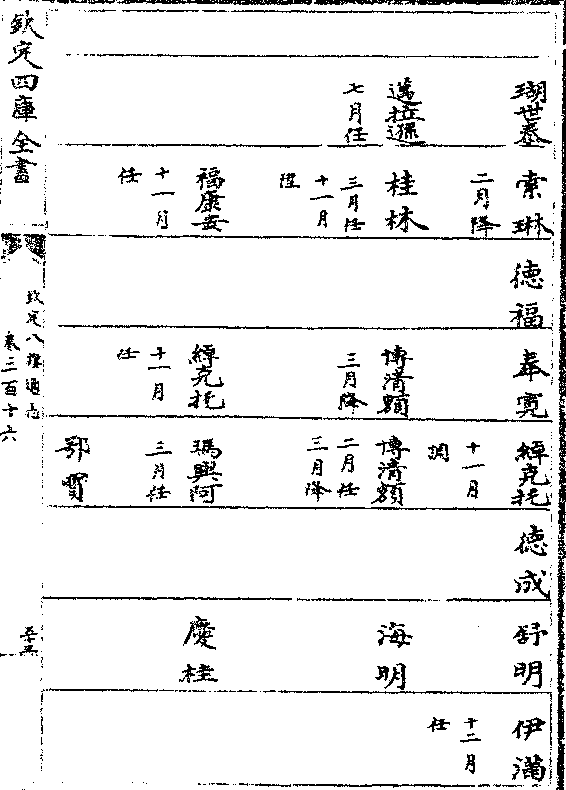 瑚世泰
邁拉遜
七月任
索琳
二月降
桂林
三月任
十一月
陞
福康安
十一月
任
德福
奉寛
博清額
三月降
綽克托
十一月
任
綽克托
十一月
調
博清額
二月任
三月降
瑪興阿
三月任
鄂寳
德成
舒明
海明
慶桂
伊滿
十二月
任
欽定四庫全書
欽定八旗通志
卷三百十六